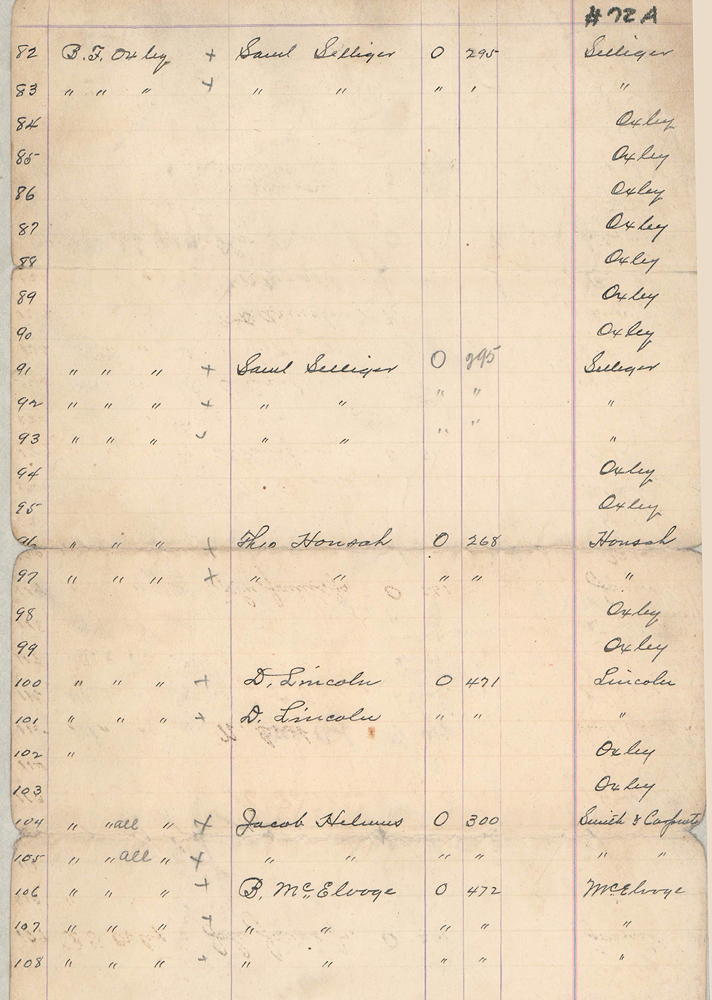 #72A
82 B.F. Oxley + Saml Selliger O 295 Selliger
83 " " " + " " " " "
84 Oxley
85 Oxley
86 Oxley
87 Oxley
88 Oxley
89 Oxley
90 Oxley
91 " " " + Saml Selliger O 295 Selliger
92 " " " + " " " " "
93 " " " " " " " "
94 Oxley
95 Oxley
96 " " " + Theo Honsah O 268 Honsah
97 " " " + " " " " "
98 Oxley
99 Oxley
100 " " " + D. Lincoln O 471 Lincoln
101 " " " + D. Lincoln " " "
102 " Oxley
103 Oxley
104 " " all " + Jacob Helmus O 300 Smith &
105 " " all " + " " " " " "
106 " " " + B. McElvoge O 472 McElvoge
107 " " " + " " " " "
108 " " " + " " " " "